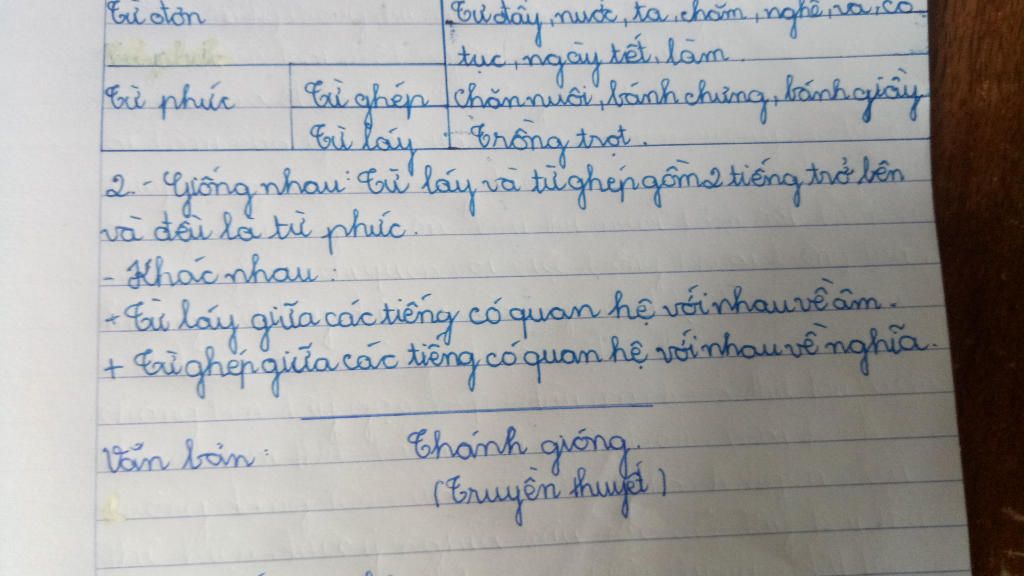 Từ đơn Từ đấy, nước, ta, chăm, nghề, và, có
tục, ngày tết, làm.
Từ phức Từ ghép chăn nuôi, bánh chưng, bánh giầy
Từ láy Trồng trọt.
2. - Giống nhau: Từ láy và từ ghép gồm 2 tiếng trở lên
và đều là từ phức.
- Khác nhau:
+ Từ láy giữa các tiếng có quan hệ với nhau về âm.
+ Từ ghép giữa các tiếng có quan hệ với nhau về nghĩa.
Văn bản: Thánh gióng.
(Truyền thuyết)